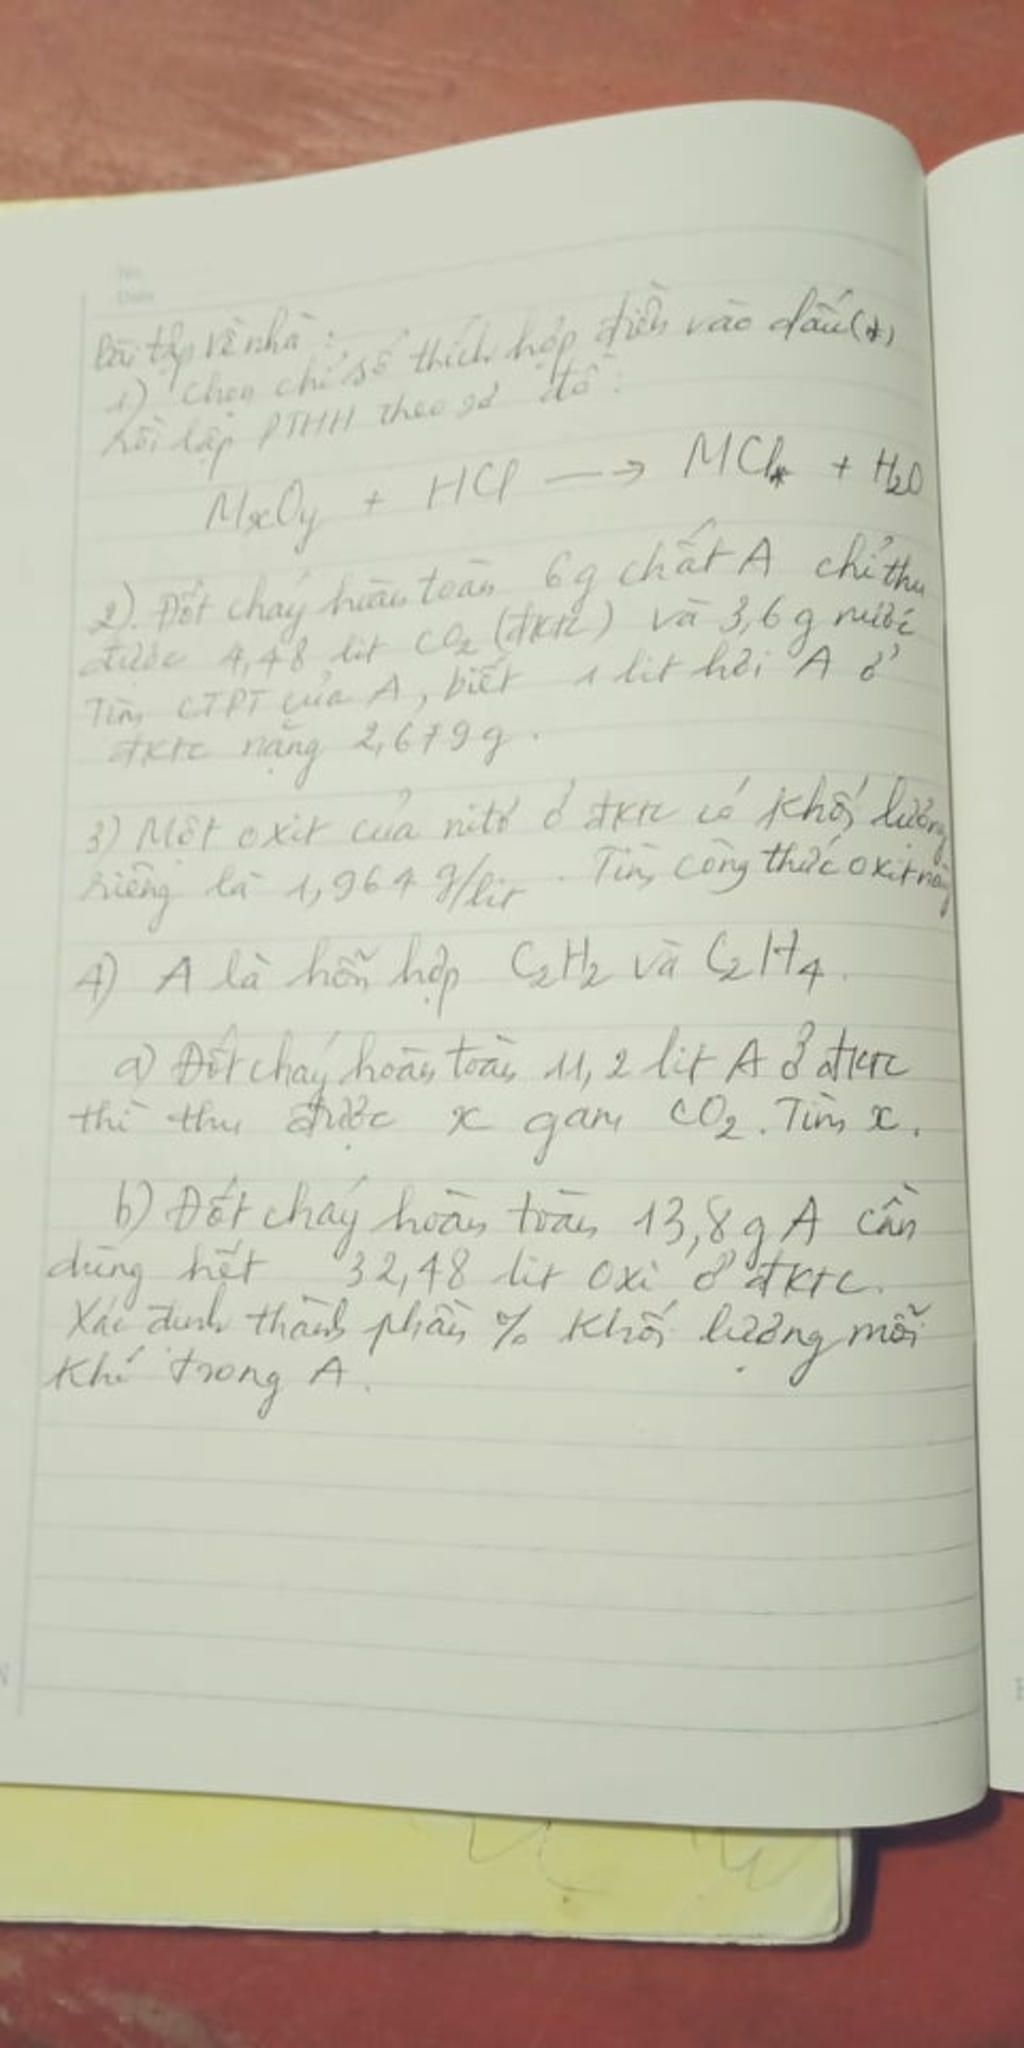 Bài tập về nhà :
1) Chọn chỉ số thích hợp điền vào dấu (*)
rồi lập PTHH theo sơ đồ :
MxOy + HCl → MCl* + H2O
2). Đốt cháy hoàn toàn 6g chất A chỉ thu
được 4,48 lit CO2 (đktc) và 3,6 g nước
Tìm CTPT của A, biết 1 lit hơi A ở
đktc nặng 2,679 g.
3) Một oxit của nitơ ở đktc có khối lượng
riêng là 1,964 g/lit. Tìm công thức oxit này
4) A là hỗn hợp C2H2 và C2H4.
a) Đốt cháy hoàn toàn 11,2 lit A ở đktc
thì thu được x gam CO2. Tìm x.
b) Đốt cháy hoàn toàn 13,8g A cần
dùng hết 32,48 lit oxi ở đktc.
Xác định thành phần % khối lượng mỗi
khí trong A.